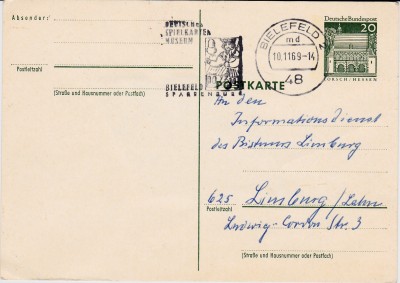 Absender:
DEUTSCHES
SPIELKARTEN
MUSEUM
BIELEFELD
SPARRENBURG
BIELEFELD
md
10.11.69-14
48
Deutsche Bundespost
20
LORSCH · HESSEN
Postleitzahl
(Straße und Hausnummer oder Postfach)
POSTKARTE
An den
Informationsdienst
des Bistums Limburg
625 Limburg/Lahn
Postleitzahl
Ludwig-Corden Str. 3
(Straße und Hausnummer oder Postfach)